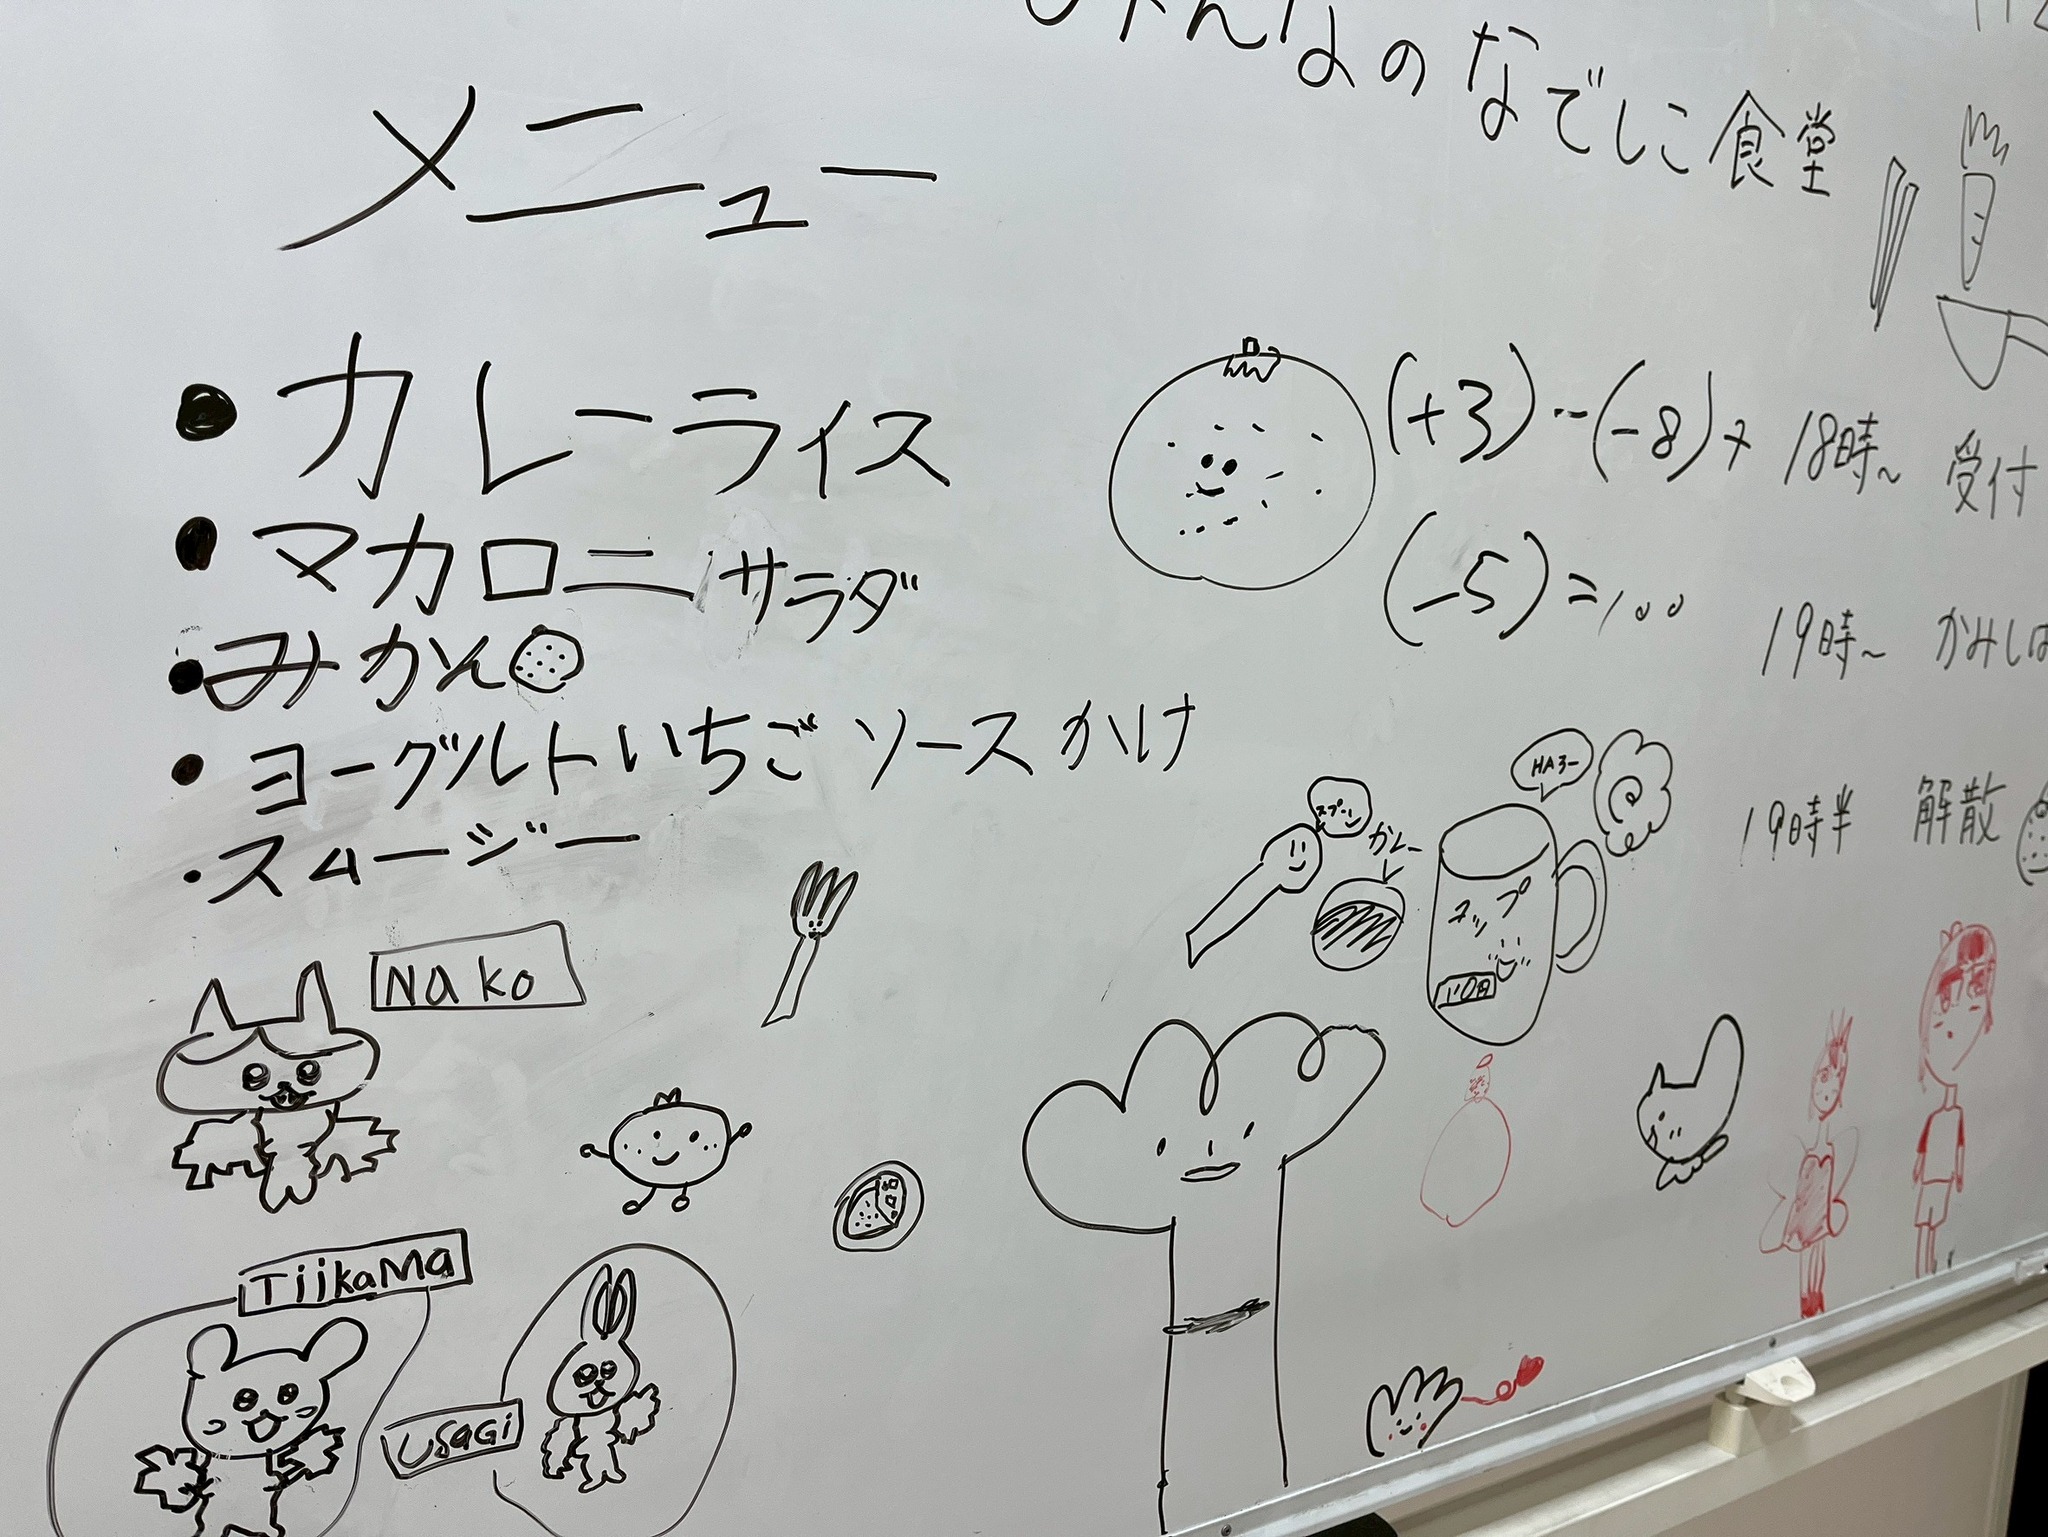 みんなのなでしこ食堂
メニュー
・カレーライス
・マカロニサラダ
・みかん
・ヨーグルトいちごソースかけ
・スムージー
(+3)-(-8)+
(-5)=
18時~ 受付
19時~ かみしば
19時半 解散
スプーン
カレー
コップ
Nako
TiikaMa
USAGi